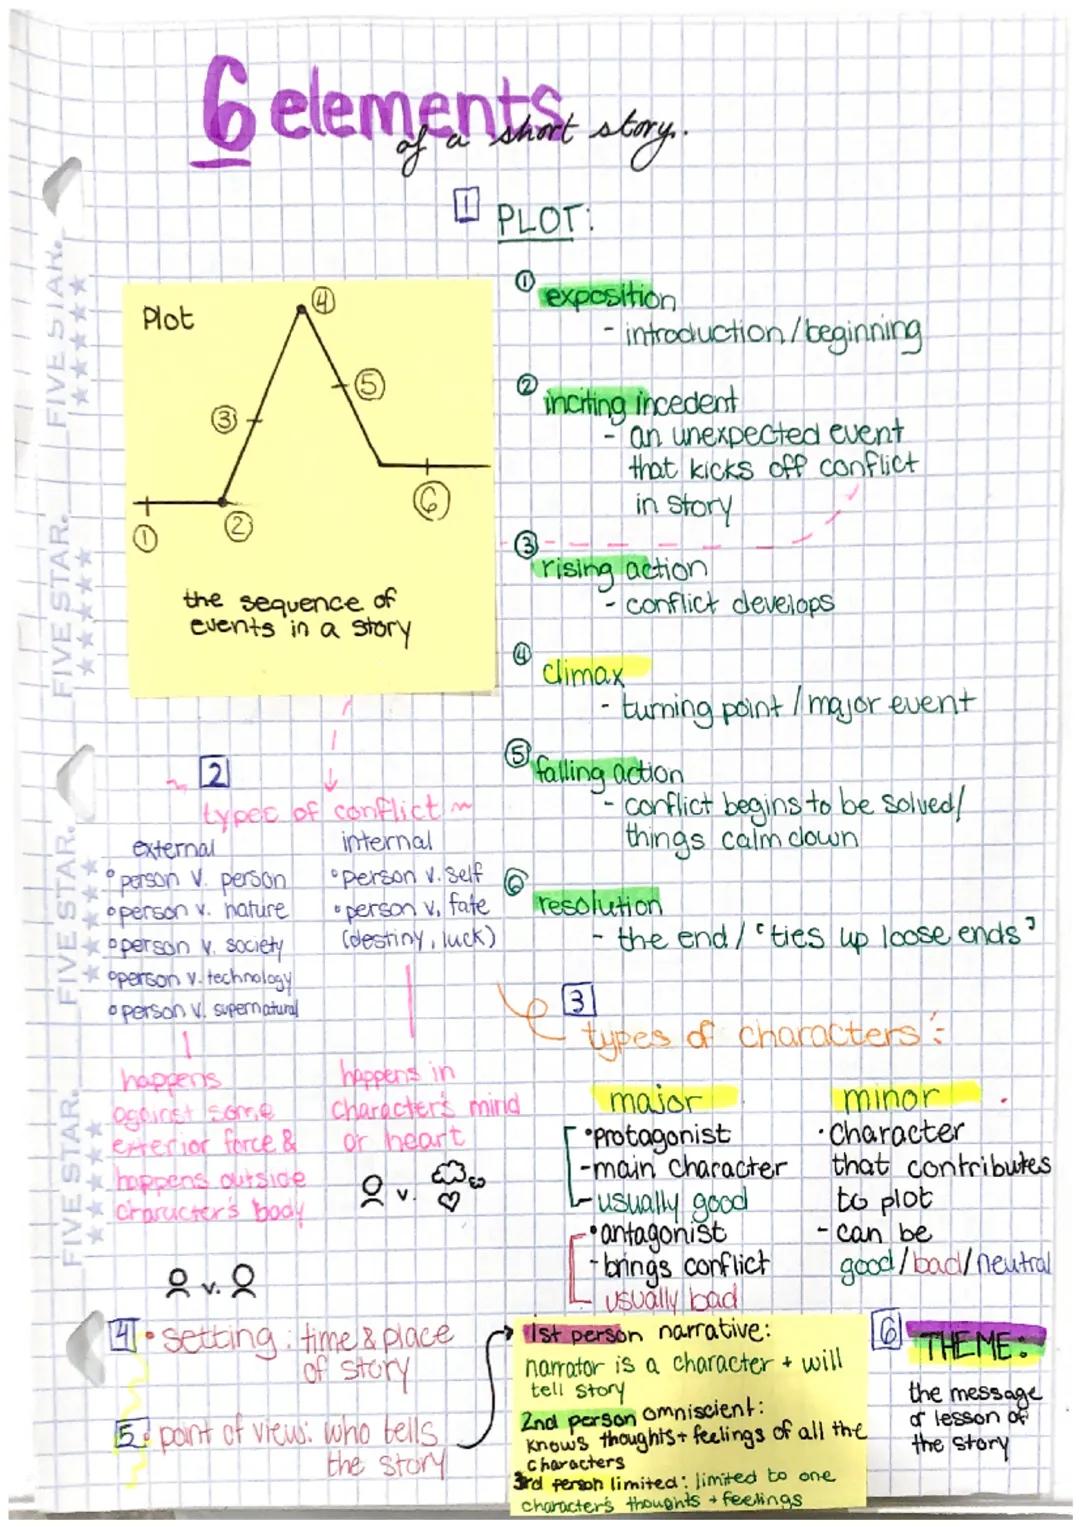 6 elements
of a short story.
1 PLOT:
Plot
① ② ③ ④ ⑤ ⑥
the sequence of
events in a story
① exposition
- introduction/beginning
② inciting incedent
- an unexpected event
that kicks off conflict
in story
③ rising action
- conflict develops
④ climax
- turning point / major event
⑤ falling action
- conflict begins to be solved/
things calm down
⑥ resolution
- the end / "ties up loose ends"
2
types of conflict
external
• person v. person
• person v. nature
• person v. society
• person v. technology
• person v. supernatural
happens
against some
exterior force &
happens outside
character's body
v.
internal
• person v. self
• person v. fate
(destiny, luck)
happens in
character's mind
or heart
v.
3
types of characters:
major
• protagonist
- main character
- usually good
• antagonist
- brings conflict
- usually bad
minor
• character
that contributes
to plot
- can be
good/bad/neutral
4 • setting: time & place
of story
5 • point of view: who tells
the story
1st person narrative:
narrator is a character + will
tell story
2nd person omniscient:
knows thoughts + feelings of all the
characters
3rd person limited: limited to one
character's thoughts + feelings
6 THEME:
the message
or lesson of
the story
FIVE STAR.
FIVE STAR.
FIVE STAR.
FIVE STAR.